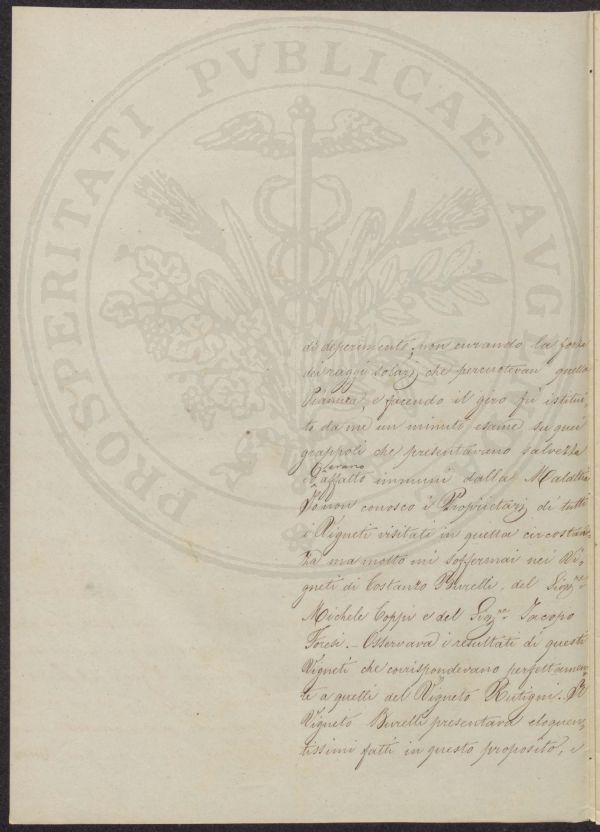 PROSPERITATI PVBLICAE AVGENDAE
di deperimento, non curando la forza
dei raggi Solari, che percuotevan quella
Pianura, e facendo il giro fù istitui
to da me un minuto esame su quei
grappoli che presentavano salvezza
erano
ed affatto immuni dalla Malattia
Io non conosco i Proprietarj di tutti
i Vigneti visitati in quella circostan=
za ma molto mi soffermai nei Vi=
gneti di Costanzo Burelli, del Sig.re
Michele Coppi e del Sig.re Jacopo
Foresi. – Osservava i resultati di questi
Vigneti che corrispondevano perfettamen=
te a quelli del Vigneto Rutigni. Il
Vigneto Burelli presentava eloquen=
tissimi fatti in questo proposito, e